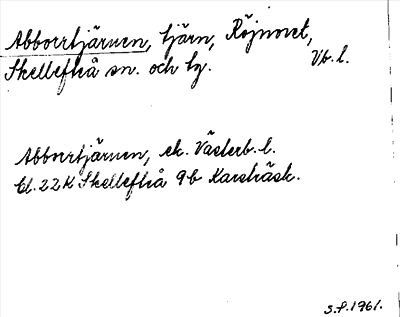 Abborrtjärnen, tjärn, Röjnoret,
Skellefteå sn. och tg. Vb. l.
Abborrtjärnen, ek. Västerb. l.
Bl. 22K Skellefteå 9b Karsträsk.
S.P. 1961.